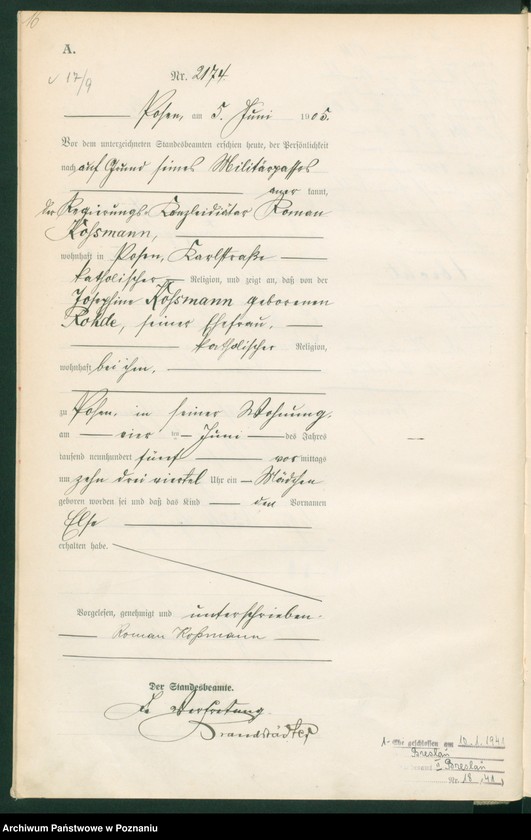 16
A.
v 17/9
Nr. 2174.
Posen, am 5. Juni 1905.
Vor dem unterzeichneten Standesbeamten erschien heute, der Persönlichkeit
nach auf Grund seines Militärpasses
aner kannt,
der Regierungs-Kanzleidiätar Roman
Koßmann,
wohnhaft in Posen, Karlstraße
katholischer Religion, und zeigt an, daß von der
Josephine Koßmann geborenen
Rohde, seiner Ehefrau,
katholischer Religion,
wohnhaft bei ihm,
zu Posen, in seiner Wohnung,
am vier ten Juni des Jahres
tausend neunhundert fünf vor mittags
um zehn drei viertel Uhr ein Mädchen
geboren worden sei und daß das Kind den Vornamen
Else
erhalten habe.
Vorgelesen, genehmigt und unterschrieben.
Roman Koßmann
Der Standesbeamte.
In Vertretung
Brandstädter
1- Ehe geschlossen am 10.1.1941
Breslau
Breslau
Nr. 18 /41
Archiwum Państwowe w Poznaniu